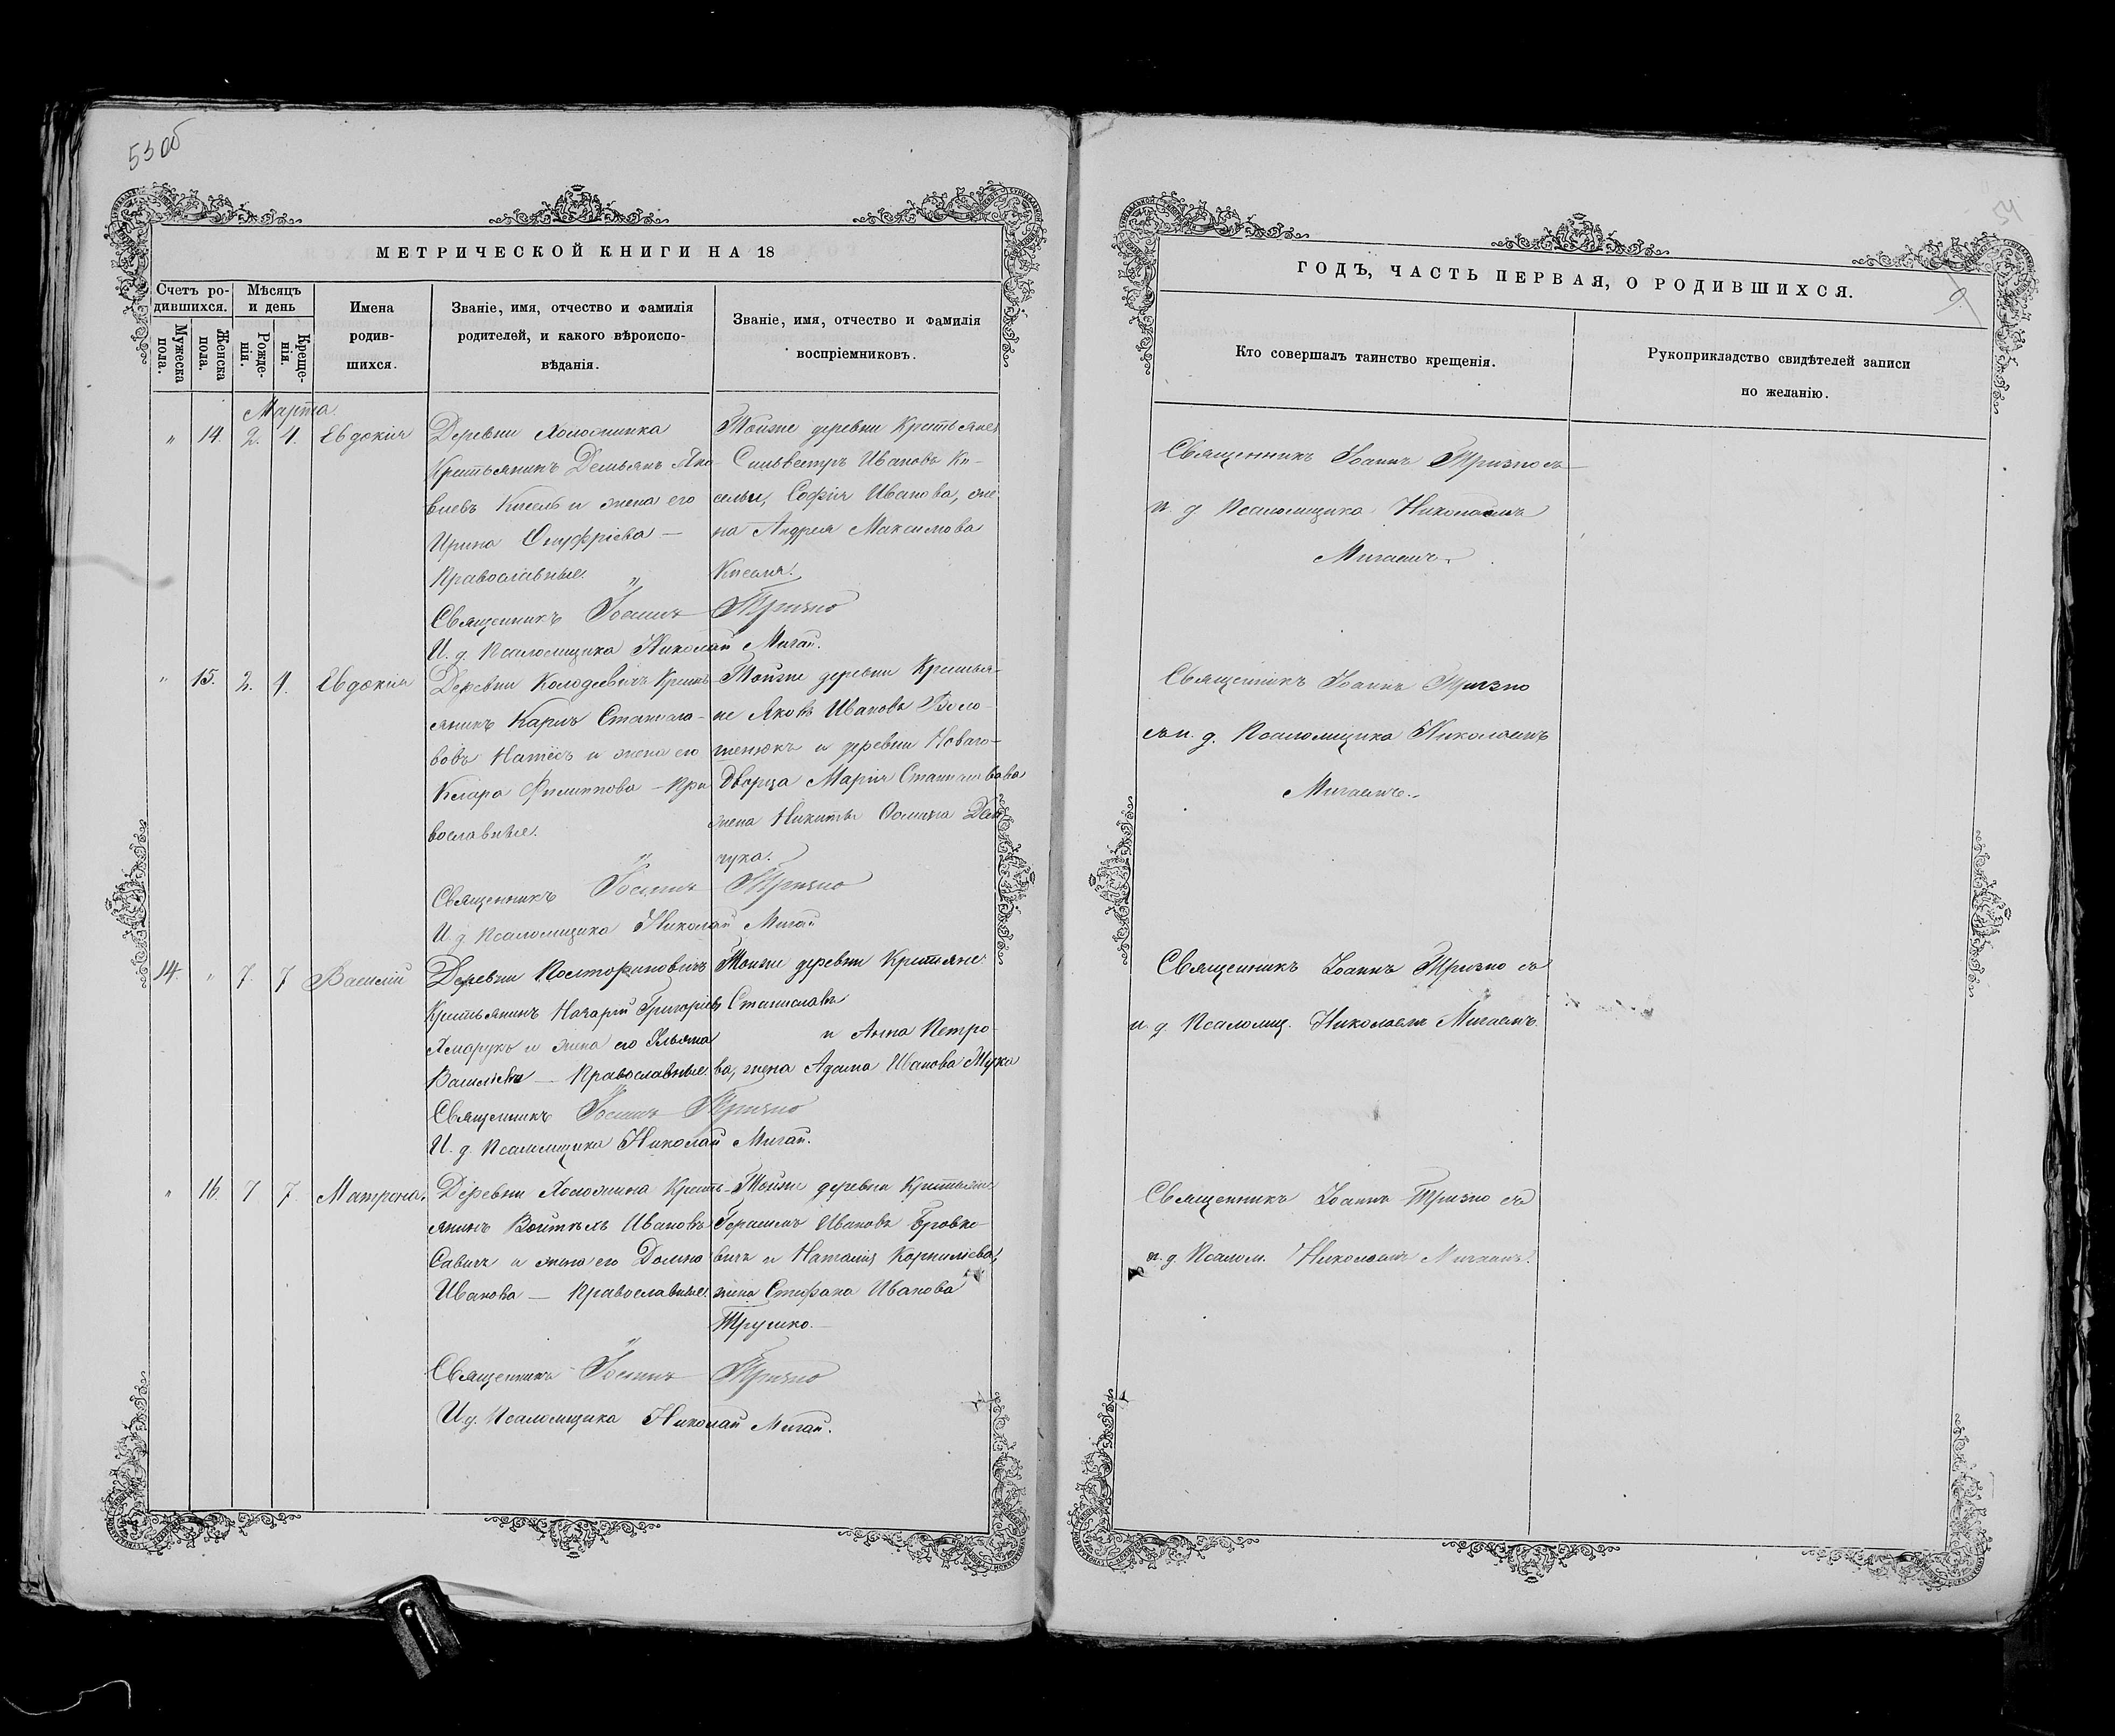 53 об
МЕТРИЧЕСКОЙ КНИГИ НА 18
Счетъ родившихся.
Мужеска пола.
Женска пола.
Мѣсяцъ и день
Рожденія.
Крещенія.
Имена родившихся.
Званіе, имя, отчество и фамилія родителей, и какого вѣроисповѣданія.
Званіе, имя, отчество и фамилія воспріемниковъ.
Марта.
" 14. 2. 4. Евдокія
Деревни Холожинка
Крестьянинъ Демьянъ Яко-
влевъ Кисель и жена его
Ирина Онуфріева —
Православные. "
Тойже деревни Крестьяне
Сильвестръ Ивановъ Ки-
сель, Софія Иванова, же-
на Андрея Максимова
Киселя.
Священникъ Іоаннъ Тризно
И. д. Псаломщика Николай Мигай.
" 15. 2. 4. Евдокія
Деревни Колодѣевичъ Кресть-
янинъ Карлъ Станисла-
вовъ и жена его
Клара Филиппова — Пра-
вославные.
Тойже деревни Крестья-
не Яковъ Ивановъ Воло-
и деревни Новаго-
Дворца Марія Станиславова
жена Никиты
чука.
Священникъ Іоаннъ Тризно
И. д. Псаломщика Николай Мигай
14. " 7. 7 Василій
Деревни
Крестьянинъ Назарій Григорьевъ
Хмарукъ и жена его Ульяна
Василіева — Православные.
Тойже деревни Крестьяне
Станиславъ
и Анна Петро-
ва, жена Адама Иванова
Священникъ Іоаннъ Тризно
И. д. Псаломщика Николай Мигай.
" 16. 7 7. Матрона.
Деревни Холожина Кресть-
янинъ Войтѣхъ Ивановъ
Савичъ и жена его Домна
Иванова — Православные.
Тойже деревни Крестьяне
Герасимъ Ивановъ Бровко-
вичъ и Наталія Корниліева,
жена Стефана Иванова
Трушко.—
Священникъ Іоаннъ Тризно
И. д. Псаломщика Николай Мигай.
54
9
ГОДЪ, ЧАСТЬ ПЕРВАЯ, О РОДИВШИХСЯ.
Кто совершалъ таинство крещенія.
Рукоприкладство свидѣтелей записи по желанію.
Священникъ Іоаннъ Тризно съ
и. д. Псаломщика Николаемъ
Мигаемъ.
Священникъ Іоаннъ Тризно
съ и. д. Псаломщика Николаемъ
Мигаемъ.
Священникъ Іоаннъ Тризно съ
и. д. Псаломщ. Николаемъ Мигаемъ.
Священникъ Іоаннъ Тризно съ
и. д. Псалом. Николаемъ Мигаемъ.